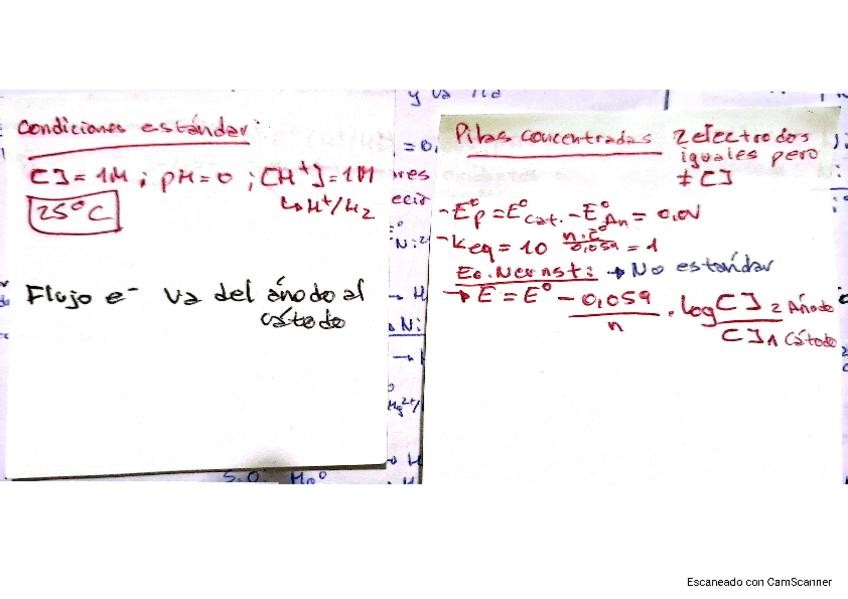 Condiciones estándar:
[] = 1M ; pH = 0 ; [H⁺] = 1M
25°C
↳ H⁺/H₂
Flujo e⁻ va del ánodo al
cátodo
y va
Pilas concentradas 2 electrodos
iguales pero
≠ []
- E°p = E°cat. - E°An = 0,0V
- Keq = 10 n·E°/0,059 = 1
Ec. Nernst: → No estándar
→ E = E° - 0,059/n · log []₂ Ánodo / []₁ Cátodo
Escaneado con CamScanner